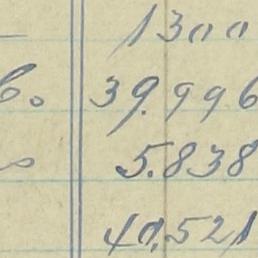 1300
6. 39.996
5.838
40,521